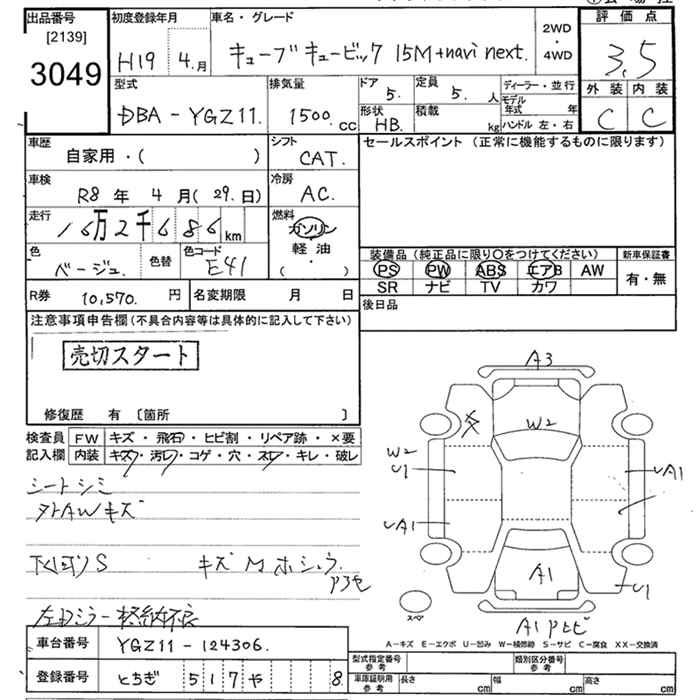 出品番号
[2139]
3049
初度登録年月
H19 4.月
車名・グレード
キューブキュービック 15M+navi next.
2WD
・
4WD
評価点
3.5
外装 内装
C C
型式
DBA-YGZ11.
排気量
1500.cc
ドア
5.
定員
5. 人
形状
HB.
積載
kg
ディーラー・並行
モデル年式 年
ハンドル 左・右
車歴
自家用・( )
シフト
CAT.
車検
R8 年 4 月(29.日)
冷房
AC.
走行
16万2千686km
燃料
ガソリン
軽・油
( ・ )
色
ベージュ.
色替
色コード
E41
R券 10,570. 円
名変期限 月 日
セールスポイント(正常に機能するものに限ります)
装備品(純正品に限り〇をつけてください)
PS PW ABS エアB AW
SR ナビ TV カワ
新車保証書
有・無
後日品
注意事項申告欄(不具合内容等は具体的に記入して下さい)
売切スタート
修復歴 有 〔箇所 〕
検査員記入欄
FW キズ・飛石・ヒビ割・リペア跡・×要
内装 キズ・汚レ・コゲ・穴・スレ・キレ・破レ
シートシミ
外AWキズ
下回りS キズMホシュウ
左ドアミラー格納不良
車台番号 YGZ11-124306.
登録番号 とちぎ 517 や 8
A3
W2
W2
U1
UA1
UA1
A1
U1
スペア
A1
A-キズ E-エクボ U-凹み W-補修跡 S-サビ C-腐食 XX-交換済
型式指定番号
参考
類別区分番号
参考
車庫証明用
参考
長さ cm
幅 cm
高さ cm